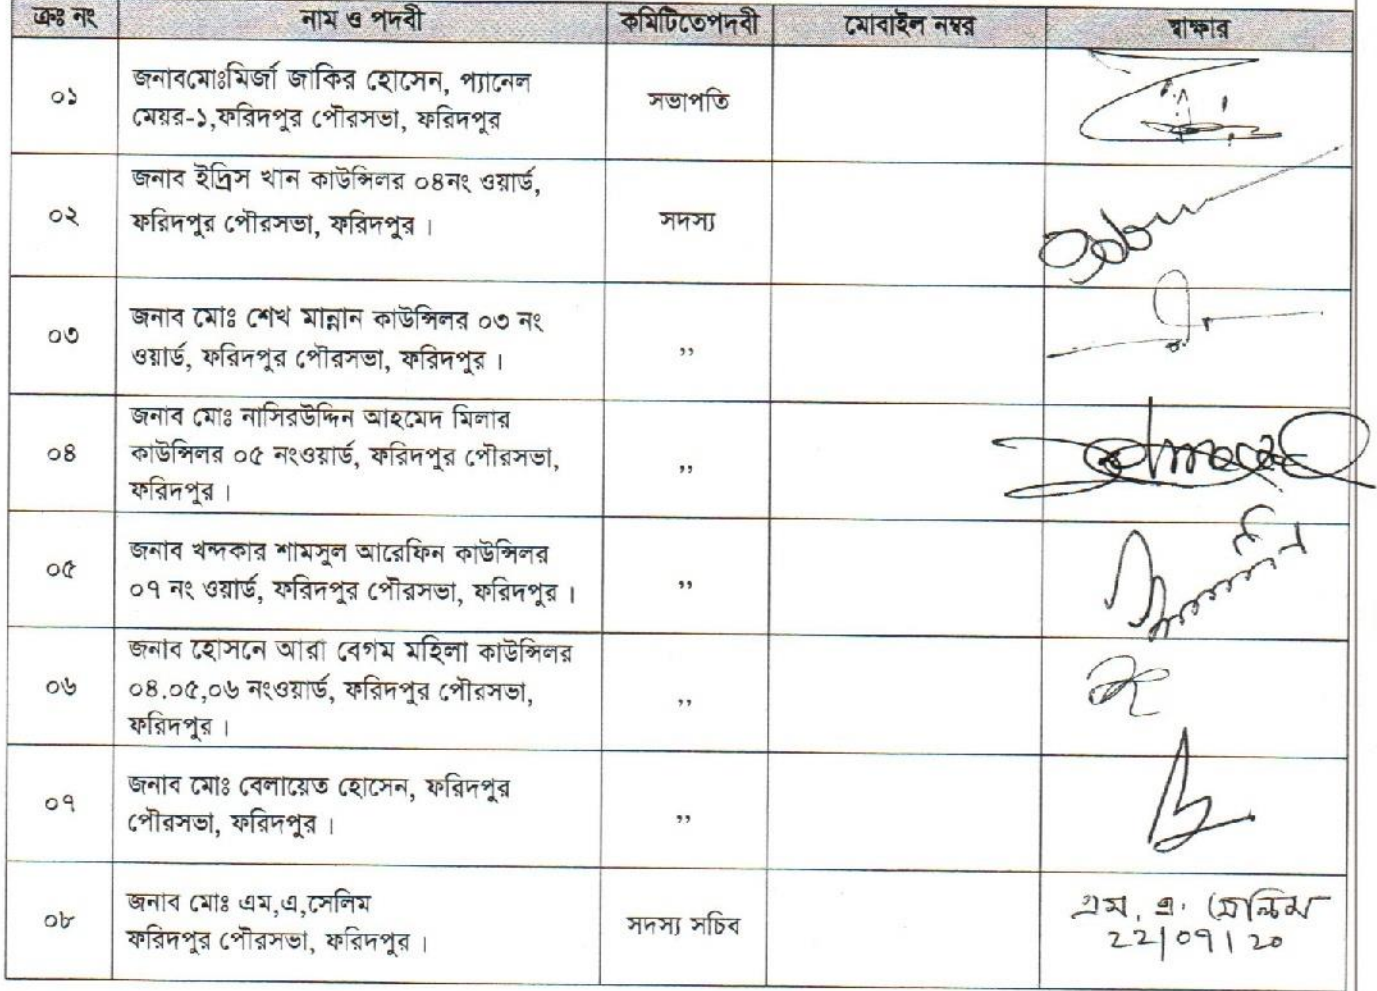 ক্রঃ নং নাম ও পদবী কমিটিতেপদবী মোবাইল নম্বর স্বাক্ষার
০১ জনাবমোঃমির্জা জাকির হোসেন, প্যানেল
মেয়র-১,ফরিদপুর পৌরসভা, ফরিদপুর
সভাপতি
০২ জনাব ইদ্রিস খান কাউন্সিলর ০৪নং ওয়ার্ড,
ফরিদপুর পৌরসভা, ফরিদপুর ।
সদস্য
০৩ জনাব মোঃ শেখ মান্নান কাউন্সিলর ০৩ নং
ওয়ার্ড, ফরিদপুর পৌরসভা, ফরিদপুর ।
,,
০৪ জনাব মোঃ নাসিরউদ্দিন আহমেদ মিলার
কাউন্সিলর ০৫ নংওয়ার্ড, ফরিদপুর পৌরসভা,
ফরিদপুর ।
,,
০৫ জনাব খন্দকার শামসুল আরেফিন কাউন্সিলর
০৭ নং ওয়ার্ড, ফরিদপুর পৌরসভা, ফরিদপুর ।
,,
০৬ জনাব হোসনে আরা বেগম মহিলা কাউন্সিলর
০৪.০৫,০৬ নংওয়ার্ড, ফরিদপুর পৌরসভা,
ফরিদপুর ।
,,
০৭ জনাব মোঃ বেলায়েত হোসেন, ফরিদপুর
পৌরসভা, ফরিদপুর ।
,,
০৮ জনাব মোঃ এম,এ,সেলিম
ফরিদপুর পৌরসভা, ফরিদপুর ।
সদস্য সচিব
এম, এ. সেলিম
22/09/20